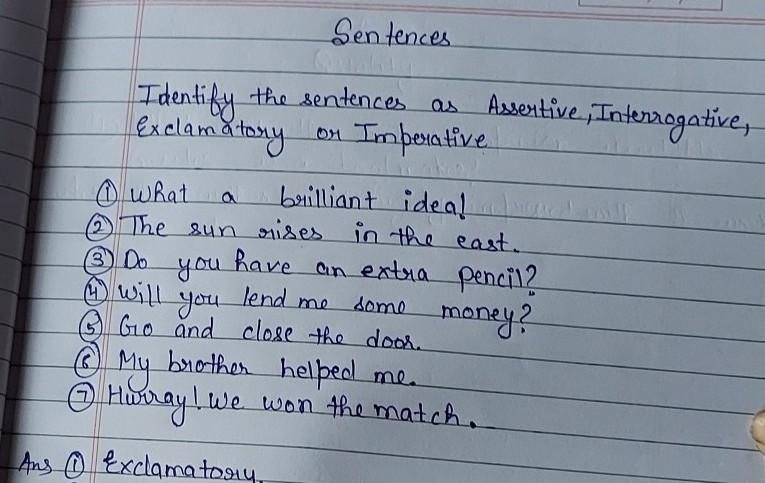 Sentences
Identify the sentences as Assertive, Interrogative,
Exclamatory or Imperative
① What a brilliant idea!
② The sun rises in the east.
③ Do you have an extra pencil?
④ Will you lend me some money?
⑤ Go and close the door.
⑥ My brother helped me.
⑦ Hurray! We won the match.
Ans ① Exclamatory.